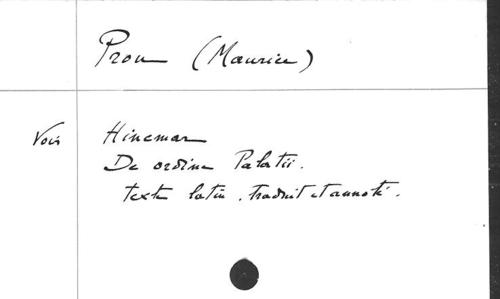 Prou (Maurice)
Voir Hincmar
De ordine Palatii.
texte latin, traduit et annoté.